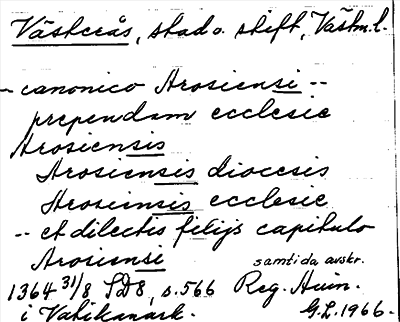 Västerås, stad o. stift, Västm.l.
-- canonico Arosiensi --
prependam ecclesie
Arosiensis
Arosiensis diocesis
Arosiensis ecclesie
-- et dilectis filijs capitulo
Arosiensi samtida avskr.
1364 31/8 SD8, s.566 Reg. Avin.
i Vatikanark. G.L. 1966.